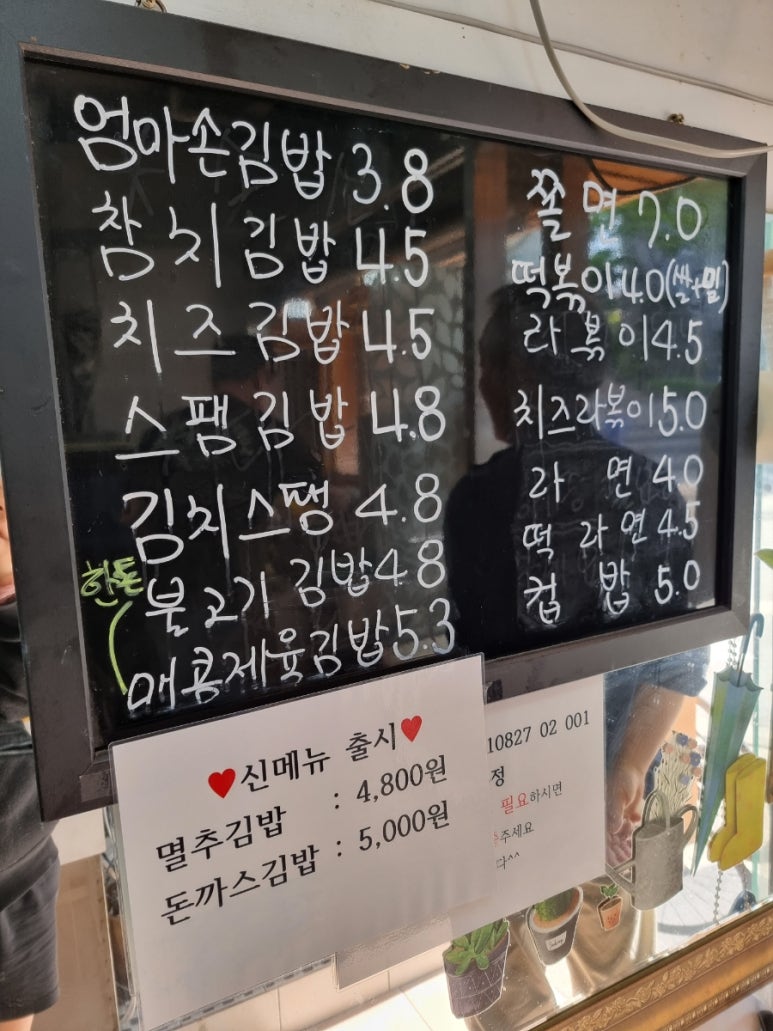 엄마손김밥 3.8
참치김밥 4.5
치즈김밥 4.5
스팸김밥 4.8
김치스팸 4.8
한돈
불고기 김밥 4.8
매콤제육김밥 5.3
쫄면 7.0
떡볶이 4.0 (쌀+밀)
라볶이 4.5
치즈라볶이 5.0
라면 4.0
떡라면 4.5
컵밥 5.0
♥신메뉴 출시♥
멸추김밥 : 4,800원
돈까스김밥 : 5,000원
10827 02 001
정
필요하시면
주세요
다^^